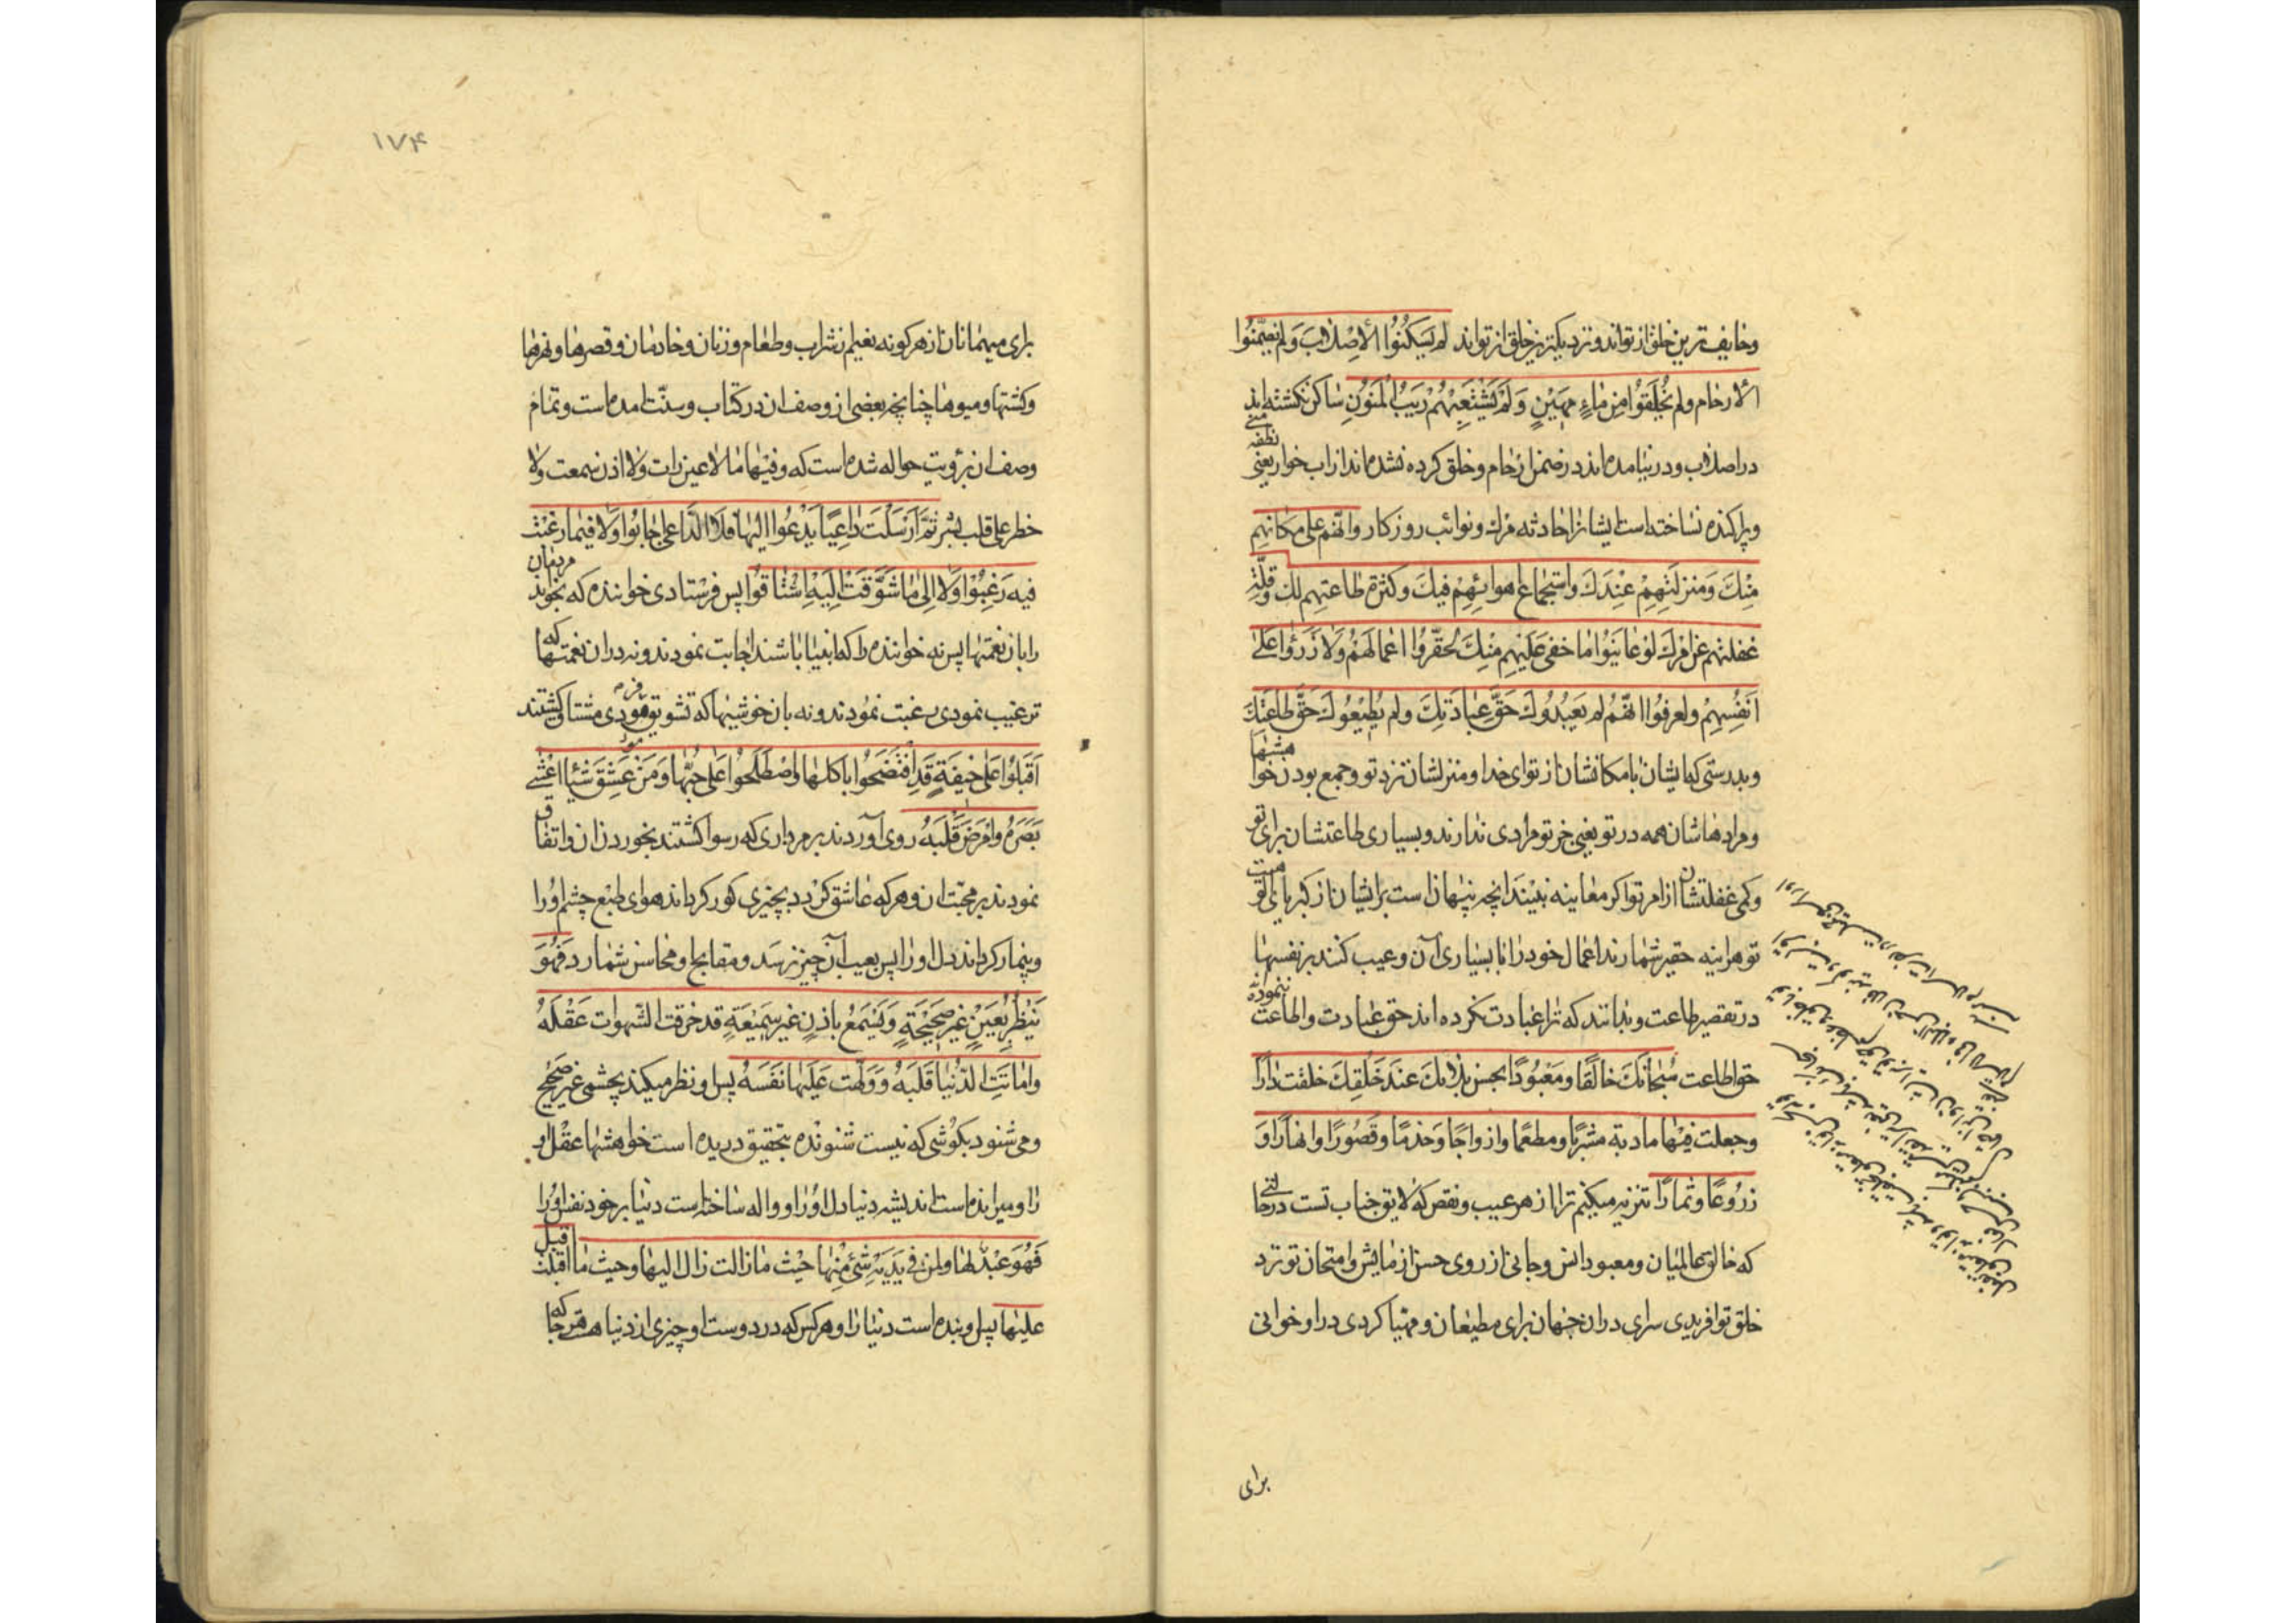 وخایف ترین خلق از تواند و نزدیکترین خلق از تواند لم یَسکُنُوا الاَصْلابَ وَلَم یُضَمَّنُوا
الاَرحام ولم یُخلَقُوا مِن ماءٍ مَهینٍ وَلَم یَتَشَعَّبهُم رَیبُ المَنُونِ ساکن نکشته اند
در اصلاب و در نیامده اند در ضمن ارحام و خلق کرده نشده اند از اب خوار یعنی نطفه
و پراکنده نساخته است ایشانرا حادثه مرک و نوائب روزکار وانّهُم علی مکانِهِم
مِنکَ وَمَنزِلَتِهِم عِندَکَ واستجماعِ اهوائِهِم فیکَ وکثرةِ طاعتِهِم لک وقلّةِ
غفلتهم عن امرِکَ لَو عایَنُوا ما خفی عَلَیهِم مِنکَ لَحَقَّرُوا اعمالَهُم وَلَزَرَوا عَلی
اَنفُسِهِم ولعرفُوا انّهُم لم یَعبُدُوکَ حَقَّ عِبادَتِکَ ولم یُطیعُوکَ حَقَّ طاعَتِکَ
و بدرستی که ایشان با مکانشان از تو ای خدا و منزلشان نزد تو و جمع بودن خواهشها
و مرادهاشان همه در تو یعنی جز تو مرادی ندارند و بسیاری طاعتشان برای تو
و کمی غفلتشان از امر تو اکر معاینه ببینند انچه پنهان است بر ایشان از کبریائی تو
تو هراینه حقیر شمارند اعمال خود را با بسیاری آن و عیب کنند بر نفسها
در تقصیر طاعت و بدانند که ترا عبادت نکرده اند حق عبادت و اطاعت ننموده
حق اطاعت سُبحانَکَ خالقًا ومَعبُودًا بحسن بلائک عندَ خَلقِکَ خلقت دارًا
وجعلت فیها مادبة مشربًا ومطعمًا وازواجًا وَخدمًا وقصُورًا وانهارًا وَ
زرُوعًا وثمارًا تنزیه میکنم ترا از هر عیب و نقص که لایق جناب تست در حالتی
که خالق عالمیان و معبود انس و جانی از روی حسن ازمایش و امتحان تو نزد
خلق تو افریدی سرای در ان جهان برای مطیعان و مهیا کردی در او خوانی
برای
۱۷۴
برای میهمانان از هر کونه نعیم از شراب و طعام و زنان و خادمان و قصرها و نهرها
و کشتها و میوها چنانچه بعضی از وصف ان در کتاب و سنّت امده است و تمام
وصف ان برؤیت حواله شده است که وفیها ما لا عین رات ولا اذن سمعت ولا
خطر علی قلب بشر ثُمَّ اَرسَلتَ داعِیًا یَدعُوا اِلَیها فَلا الدّاعی اَجابُوا وَلا فیما رغّبتَ
فیه رَغِبُوا وَلا اِلی ما شَوَّقتَ اِلَیهِ اشتاقُوا پس فرستادی خواننده که بخواند مردمان
را بان نعمتها پس نه خواننده را که انبیا باشند اجابت نمودند و نه در ان نعمتها که
ترغیب نمودی رغبت نمودند و نه بان خوشیها که تشویق فرمودی مشتاق کشتند
اَقبَلُوا عَلی جیفَةٍ قَدِ افتَضَحُوا باکلها واصطَلَحُوا عَلی حُبِّها وَمَن عَشِقَ شَیئًا اعشی
بَصَرَهُ وامرَضَ قَلبَهُ روی آوردند بر مرداری که رسوا کشتند بخوردن ان و اتفاق
نمودند بر محبّت ان و هر که عاشق کردد بچیزی کور کرداند هوای طبع چشم او را
و بیمار کرداند دل او را پس بعیب آن چیز نرسد و مقابح و محاسن شمارد فَهُوَ
یَنظُرُ بعَینٍ غیرِ صَحیحَةٍ وَیَسمَعُ باذنٍ غیرِ سَمیعَةٍ قد خرقت الشّهوات عَقلَهُ
واماتَتِ الدُّنیا قَلبَهُ وَوَلِهَت عَلَیها نَفسُهُ پس او نظر میکند بچشمی غیر صحیح
و می شنود بکوشی که نیست شنونده بتحقیق دریده است خواهشها عقل او
را و میرانده است اندیشه دنیا دل او را و واله ساخته است دنیا بر خود نفس او را
فَهُوَ عَبدٌ لها ولمن فی یَدَیهِ شَیءٌ مِنها حَیثُ ما زالت زال الیها وحیث ما اقبلت اقبل
علیها پس او بنده است دنیا را و هر کس که در دوست او چیزی از دنیا هست هر جا که